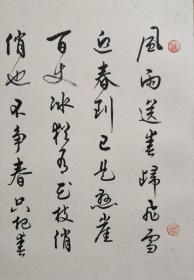 風雨送春歸飛雪
迎春到已是懸崖
百丈冰猶有花枝俏
俏也不争春只把春